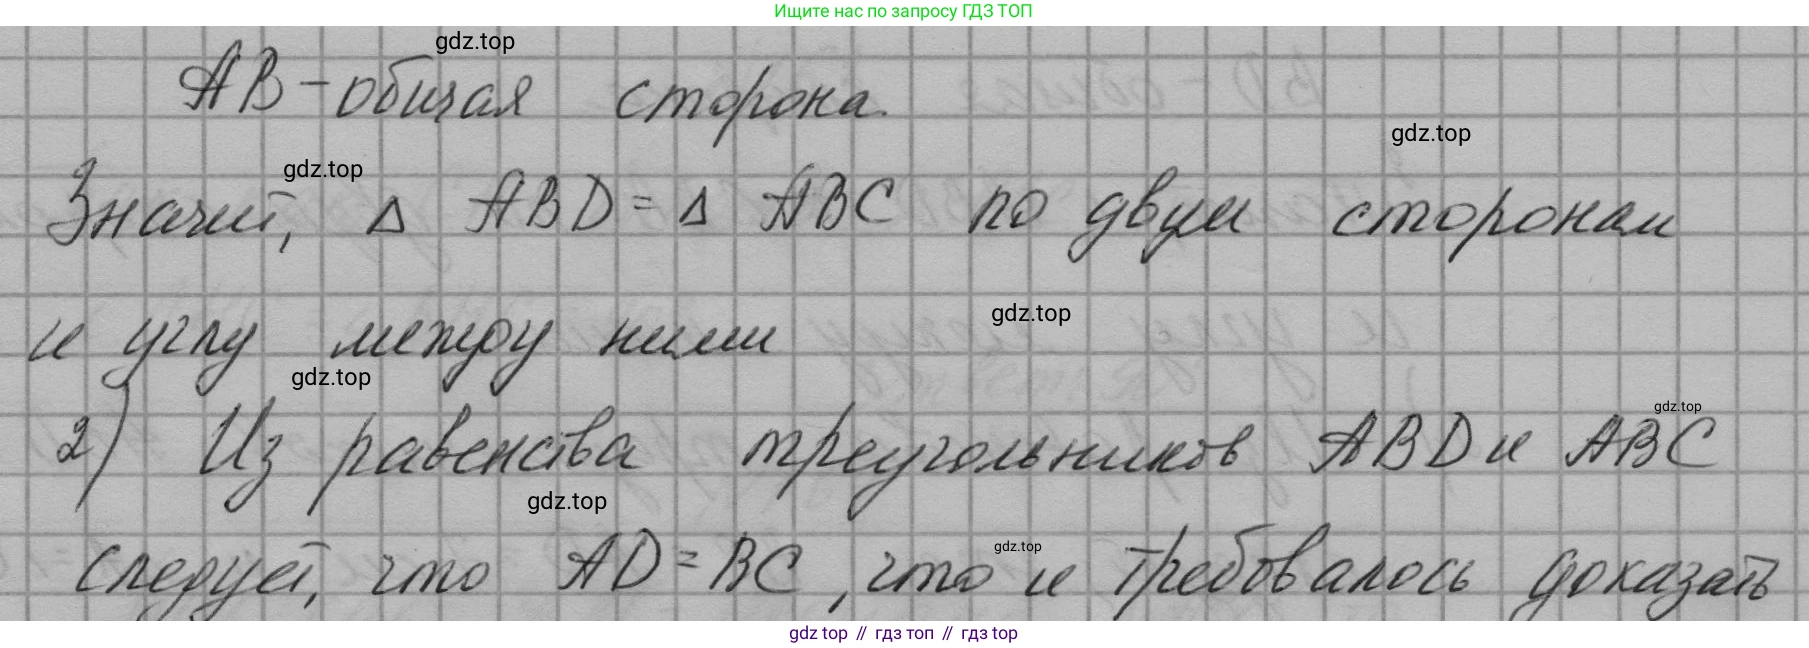 Ищите нас по запросу ГДЗ ТОП
gdz.top
AB - общая сторона.
gdz.top
gdz.top
Значит, Δ ABD = Δ ABC по двум сторонам
gdz.top
и углу между ними
gdz.top
gdz.top
2) Из равенства треугольников ABD и ABC
gdz.top
gdz.top
следует, что AD = BC, что и требовалось доказать
gdz top // гдз топ // гдз top